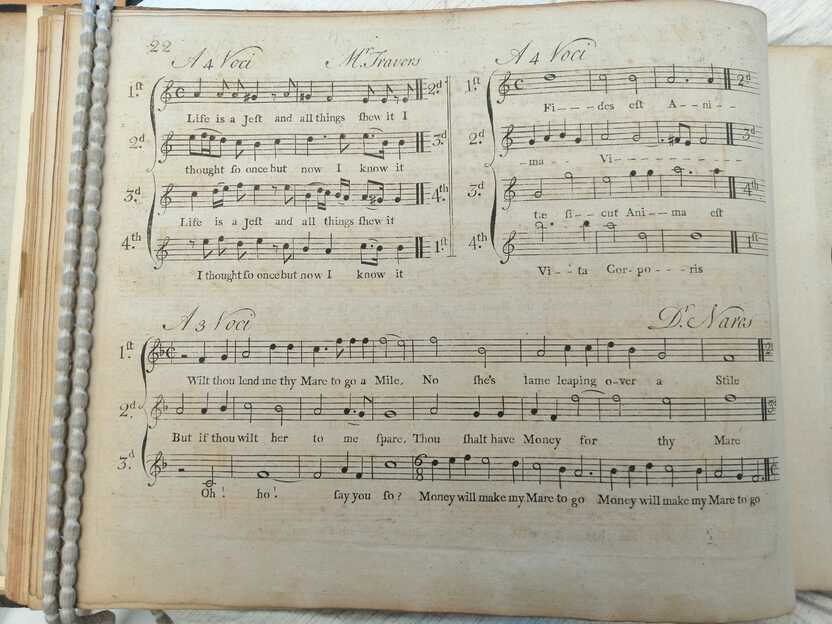 22
A 4 Voci Mr. Travers
1.st 2.d
Life is a Jeſt and all things ſhew it I
2.d 3.d
thought ſo once but now I know it
3.d 4.th
Life is a Jeſt and all things ſhew it
4.th 1.st
I thought ſo once but now I know it
A 4 Voci
1.st 2.d
Fi - - - - des eſt A - - ni - -
2.d 3.d
- ma - - Vi - - - - - - - - - -
3.d 4.th
tæ ſi - - cut Ani - - ma eſt
4.th 1.st
Vi - - ta Cor - po - - - - ris
A 3 Voci Dr. Nares
1.st 2.d
Wilt thou lend me thy Mare to go a Mile, No ſhe's lame leaping o-ver a Stile
2.d 3.d
But if thou wilt her to me ſpare, Thou ſhalt have Money for thy Mare
3.d
Oh! ho! ſay you ſo? Money will make my Mare to go Money will make my Mare to go